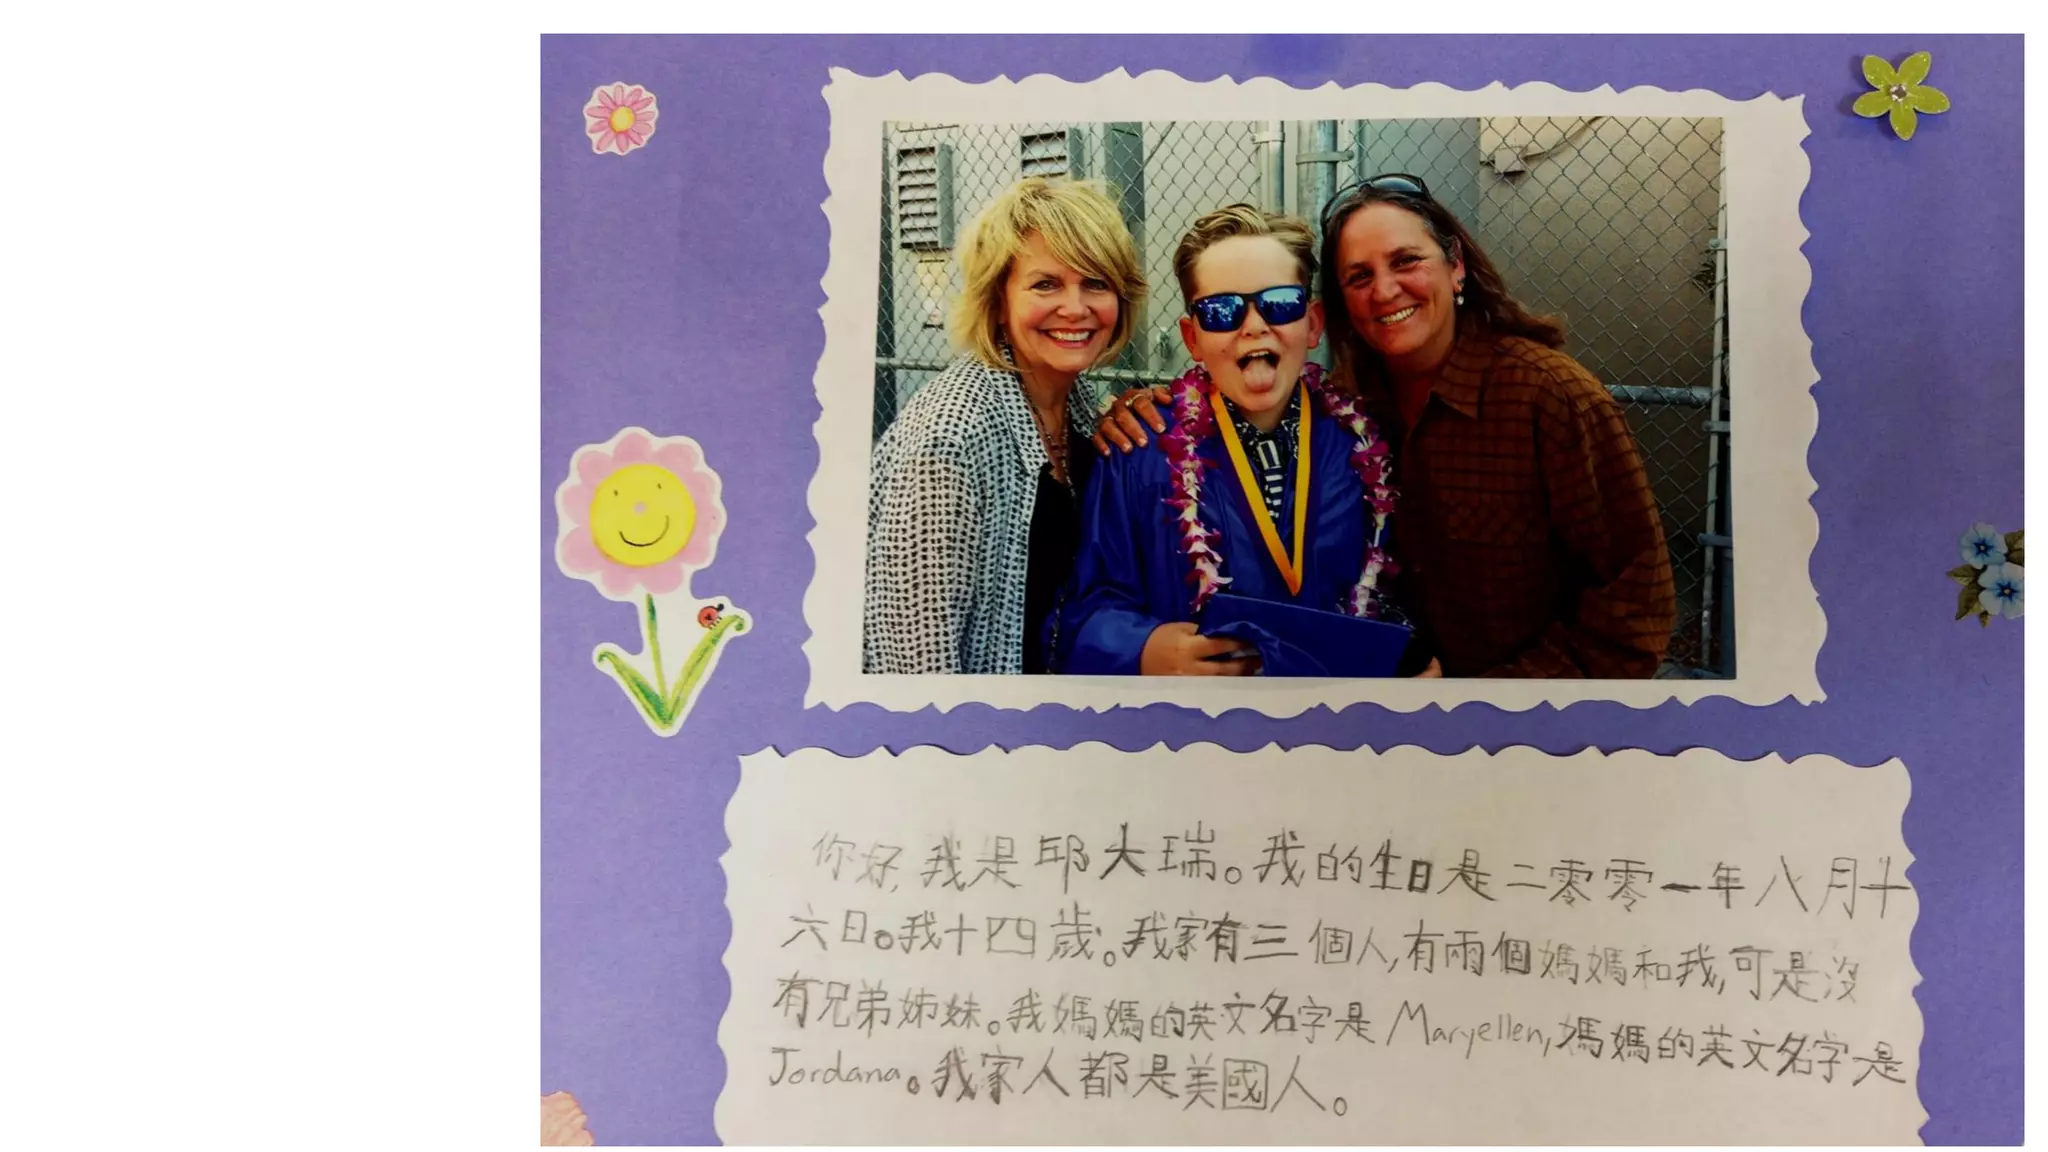 你好,我是邱大瑞。我的生日是二零零一年八月十
六日。我十四歲。我家有三個人,有兩個媽媽和我,可是沒
有兄弟姊妹。我媽媽的英文名字是 Maryellen,媽媽的英文名字是
Jordana。我家人都是美國人。